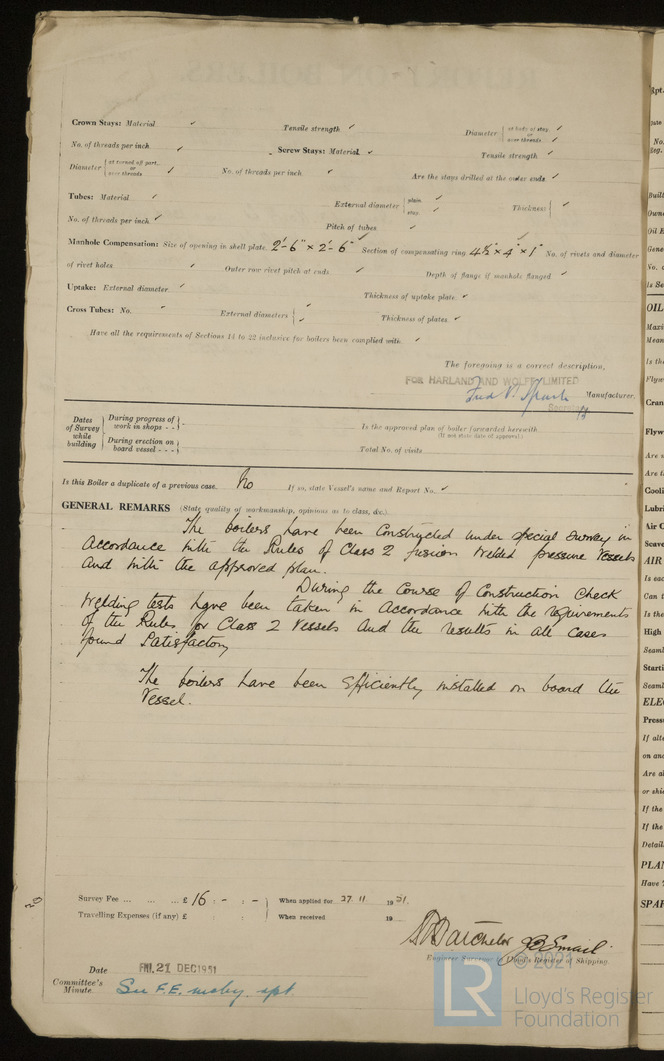 Crown Stays: Material ✓ Tensile strength ✓ Diameter { at body of stay ✓ or over threads ✓
No. of threads per inch ✓ Screw Stays: Material ✓ Tensile strength ✓
Diameter { at turned off part, or over threads ✓ No. of threads per inch ✓ Are the stays drilled at the outer ends ✓
Tubes: Material ✓ External diameter { plain ✓ stay ✓ Thickness { ✓
No. of threads per inch ✓ Pitch of tubes ✓
Manhole Compensation: Size of opening in shell plate 2'-6" × 2'-6" Section of compensating ring 4½" × 4" × 1" No. of rivets and diameter
of rivet holes ✓ Outer row rivet pitch at ends ✓ Depth of flange if manhole flanged ✓
Uptake: External diameter ✓ Thickness of uptake plate ✓
Cross Tubes: No. ✓ External diameters { ✓ Thickness of plates ✓
Have all the requirements of Sections 14 to 22 inclusive for boilers been complied with ✓
The foregoing is a correct description,
FOR HARLAND AND WOLFF LIMITED
Manufacturer.
Secretary
Dates of Survey while building { During progress of work in shops - - }
{ During erection on board vessel - - - }
Is the approved plan of boiler forwarded herewith
(If not state date of approval.)
Total No. of visits
Is this Boiler a duplicate of a previous case. No If so, state Vessel's name and Report No. ✓
GENERAL REMARKS (State quality of workmanship, opinions as to class, &c.)
The boilers have been Constructed under special Survey in
Accordance with the Rules of Class 2 fusion Welded pressure Vessels
And with the approved plan.
During the Course of Construction Check
Welding tests have been taken in Accordance with the requirements
of the Rules for Class 2 Vessels And the results in all Cases
found Satisfactory
The boilers have been Efficiently installed on board the
Vessel.
Survey Fee ... ... ... £ 16 : - : - When applied for 27. 11 19 51.
Travelling Expenses (if any) £ : : When received 19
Batchelor J B Smail
Engineer Surveyor Lloyd's Register of Shipping.
Date FRI. 21 DEC 1951
Committee's Minute See F.E. mchy. rpt
© 2021
LR Lloyd's Register
Foundation
Rpt.
No.
Reg.
Built
Owne
Oil E
Gene
No. o
Is Se
OIL
Maxi
Mean
Is th
Flyw
Cran
Flyw
Are v
Are t
Cooli
Lubri
Air C
Scave
AIR
Is eac
Can t
Is the
High
Seaml
Starti
Seaml
ELE
Press
If alte
on an
Are al
or shi
If the
If the
Detail
PLAN
Have
SPAR